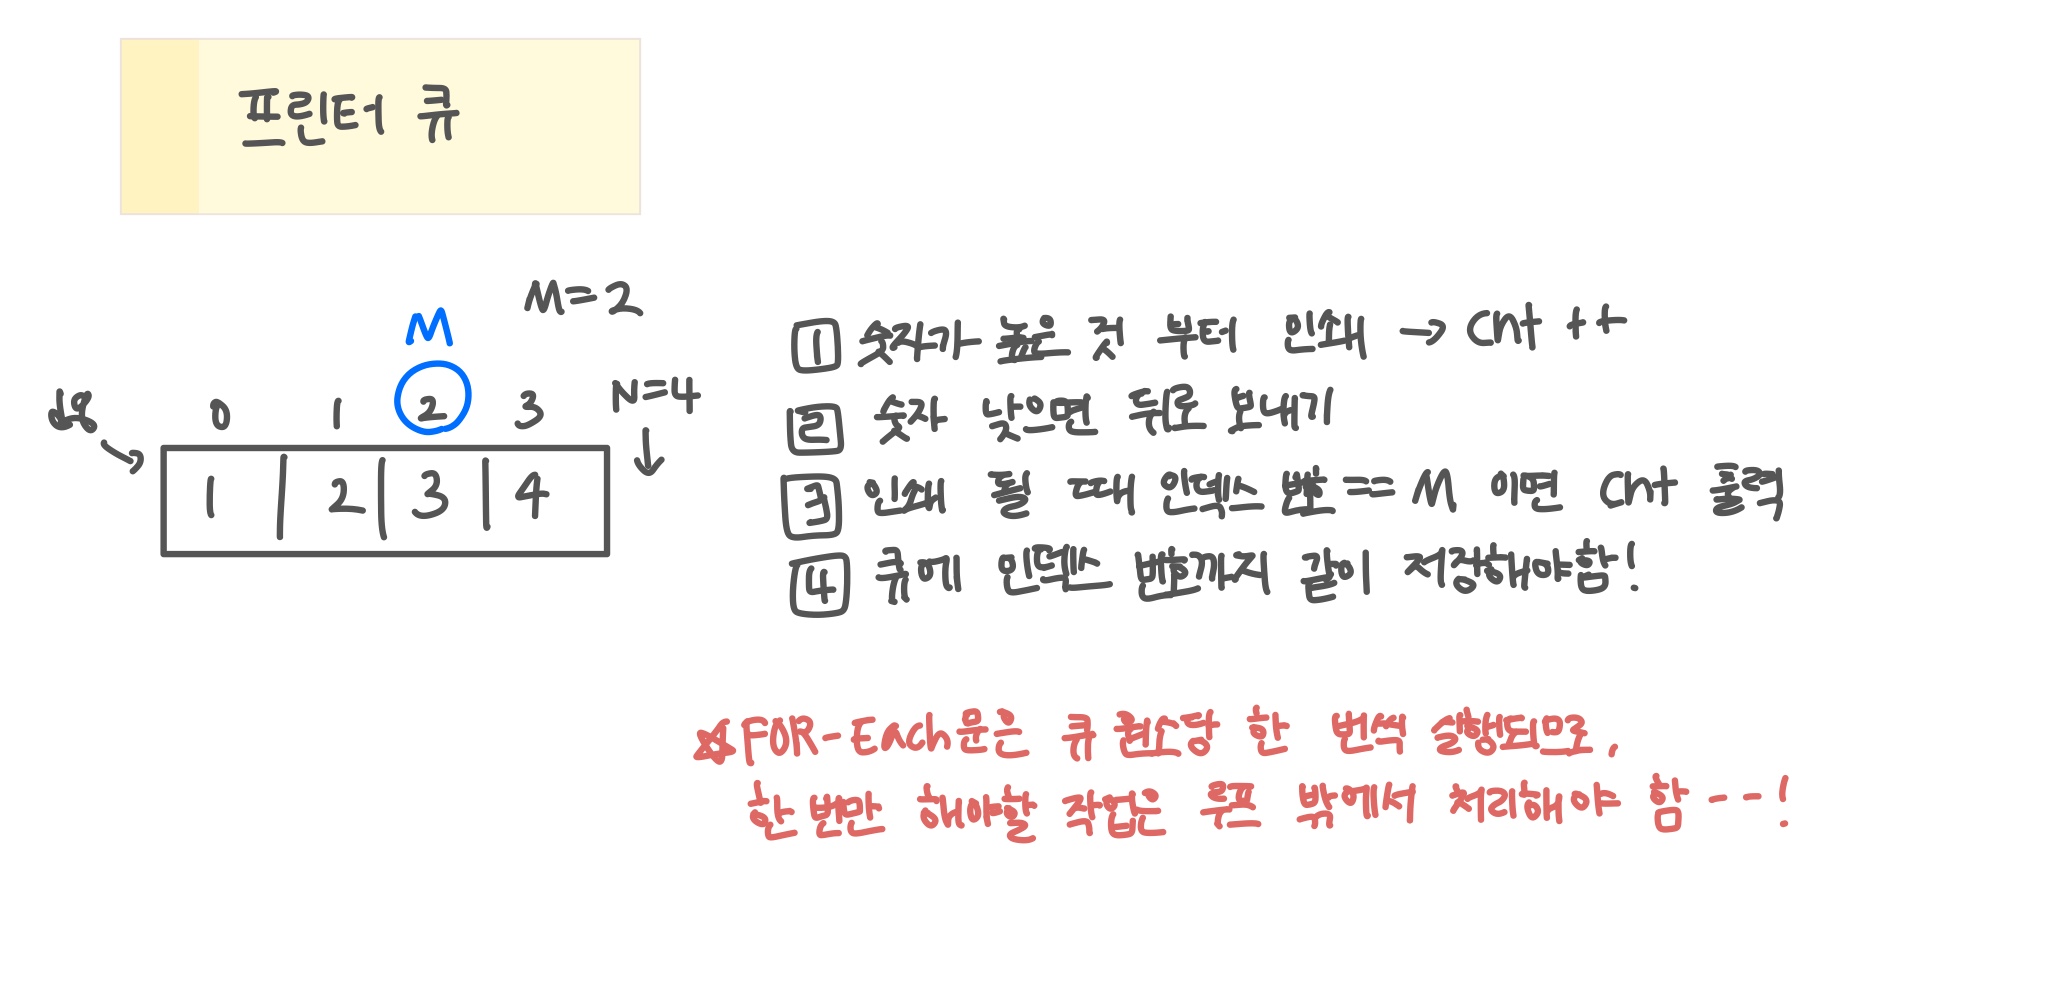 프린터 큐
M=2
M
0 1 2 3 N=4
1 2 3 4
1 숫자가 높은 것 부터 인쇄 → cnt ++
2 숫자 낮으면 뒤로 보내기
3 인쇄 될 때 인덱스 번호 == M 이면 cnt 출력
4 큐에 인덱스 번호까지 같이 저장해야함!
☆FOR-Each문은 큐 원소당 한 번씩 실행되므로,
한 번만 해야할 작업은 루프 밖에서 처리해야 함--!